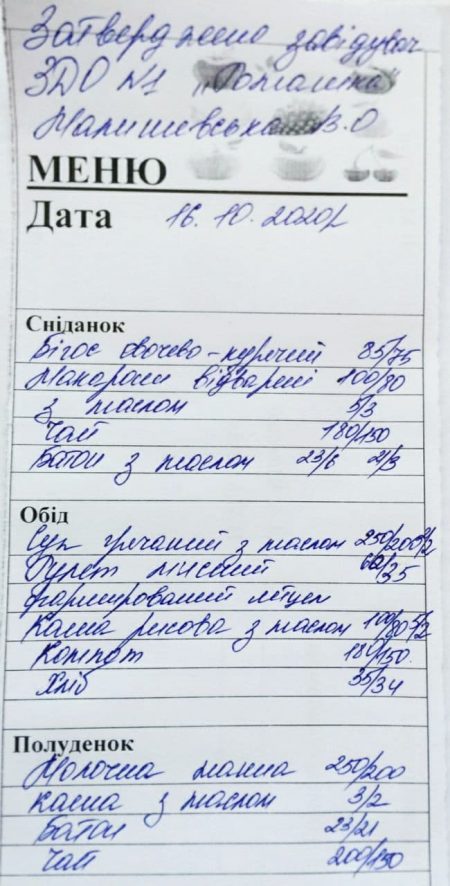 Затверджено завідувач
ЗДО №1 "Ромашка"
Малишевська В.О
МЕНЮ
Дата 16.10.2020р
Сніданок
Бігос овочево-курячий 85/75
Макарони відварені 100/80
з маслом 5/3
Чай 180/150
Батон з маслом 23/6 21/3
Обід
Суп гречаний з маслом 250/200 2/2
Рулет мисний 60/35
фарширований яйцем
Каша рисова з маслом 100/80 5/2
Компот 180/150
Хліб 35/34
Полуденок
Молочна манна 250/200
каша з маслом 3/2
Батон 23/21
Чай 200/150